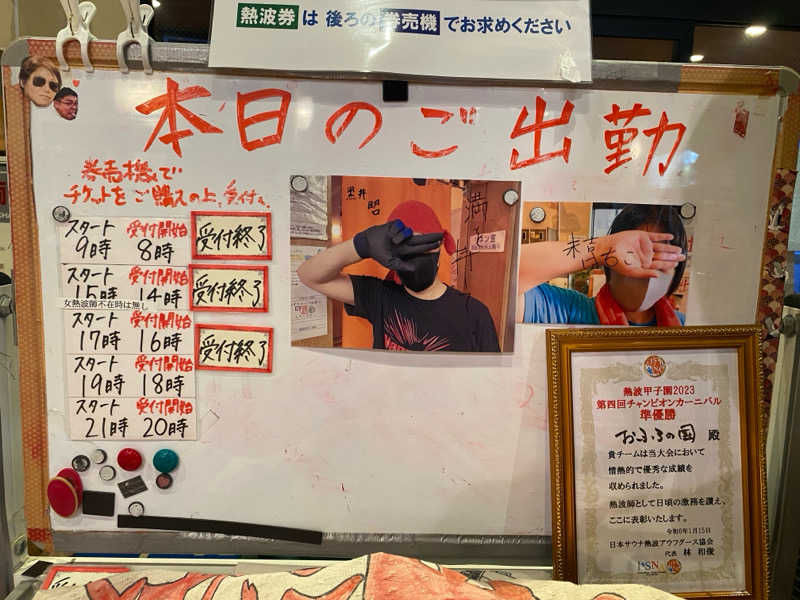 熱波券は 後ろの券売機でお求めください
本日のご出勤
券売機で
チケットをご購入の上、受付へ
スタート 受付開始 受付終了
9時 8時
スタート 受付開始 受付終了
15時 14時
女熱波師不在時は無し
スタート 受付開始 受付終了
17時 16時
スタート 受付開始
19時 18時
スタート 受付開始
21時 20時
黒井
熱波甲子園2023
第四回チャンピオンカーニバル
準優勝
おふろの国 殿
貴チームは当大会において
情熱的で優秀な成績を
収められました。
熱波師として日頃の激務を讃え、
ここに表彰いたします。
令和6年1月15日
日本サウナ熱波アウフグース協会
代表 林 和俊